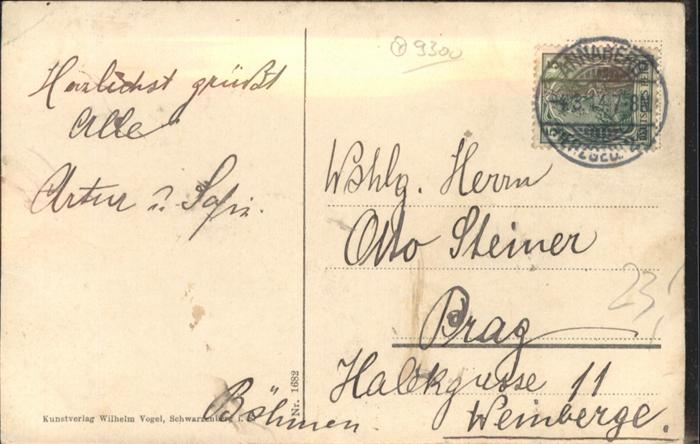 9300
Herzlichst grüßt
Alle
Artur u. Sofie.
ANNABERG
4.3.14. 7-8N
ERZGEB.
Wohlg. Herrn
Otto Steiner
Prag
23
Halekgasse 11
Weinberge.
Böhmen.
Kunstverlag Wilhelm Vogel, Schwarzenberg i. S.
Nr. 1682